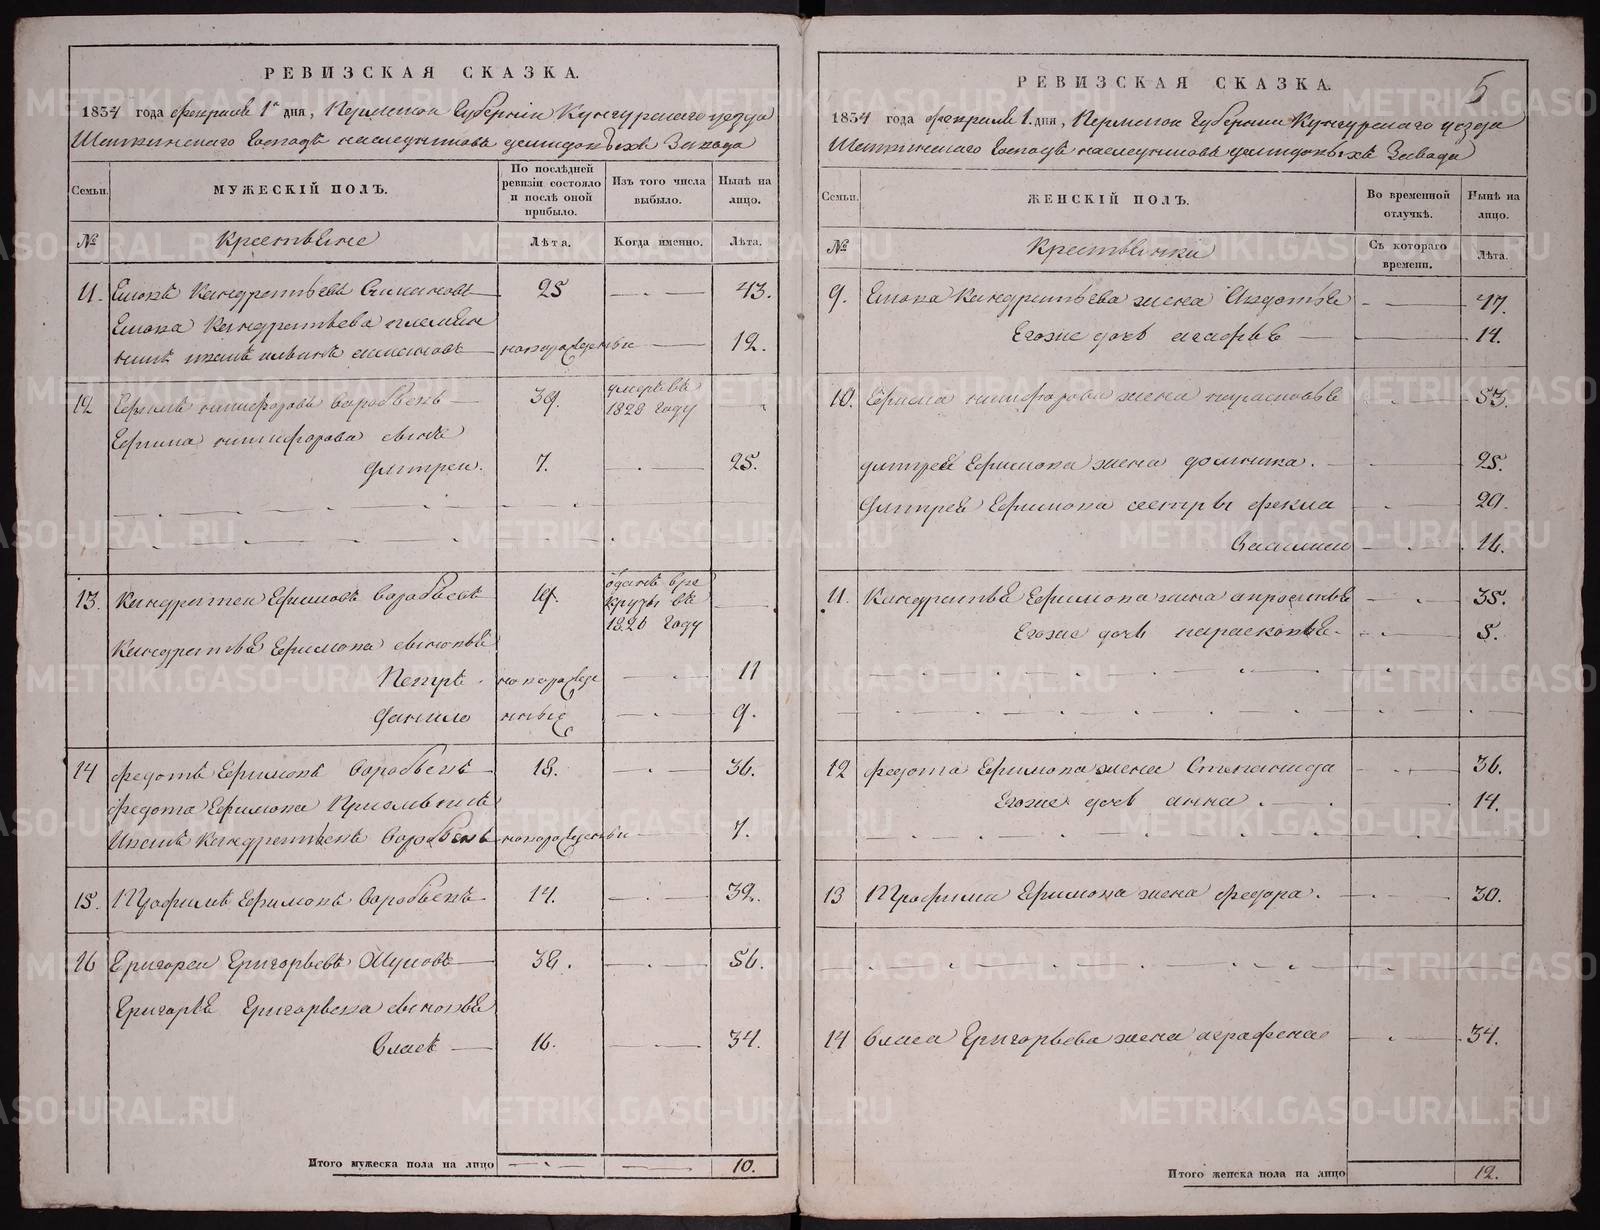 РЕВИЗСКАЯ СКАЗКА.
1834 года февраля 1 дня, Пермской Губернии Кунгурского уезда
Господъ наследниковъ Демидовыхъ Завода
Семьи.
МУЖЕСКІЙ ПОЛЪ.
По послѣдней ревизіи состояло и послѣ оной прибыло.
Изъ того числа выбыло.
Нынѣ на лицо.
№
Крестьяне
Лѣта.
Когда именно.
Лѣта.
11. Кандратьевъ 25 43.
Кандратьева племян
никъ новорожденны 12.
12 Ефимъ никифоровъ Воробьевъ 39. умеръ въ 1828 году
Ефима никифорова сынъ
Дмитреи. 7. 25.
13. Кандратеи Ефимовъ Воробьевъ 19. отданъ в ре
круты въ
1820 году
Кандратья Ефимова сыновья
Петръ новорожде 11
Данило нные 9.
14 Федотъ Ефимовъ Воробьевъ 18. 36.
Федота Ефимова
Кандратьевъ Воробьевъ новорожденны 7.
15. Трофимъ Ефимовъ Воробьевъ 14. 32.
16 Григореи Григорьевъ 38. 56.
Григорья Григорьева сыновья
Власъ 16. 34.
Итого мужеска пола на лицо 10.
РЕВИЗСКАЯ СКАЗКА.
5
1834 года февраля 1. дня, Пермской Губернии Кунгурского уезда
Господъ наследниковъ Демидовыхъ Завода
Семьи.
ЖЕНСКІЙ ПОЛЪ.
Во временной отлучкѣ.
Нынѣ на лицо.
№
Крестьянки
Съ котораго времени.
Лѣта.
9. Кандратьева жена Авдотья 47.
Егоже дочь агафья 14.
10. Ефима никифорова жена парасковья 53.
Дмитрея Ефимова жена домника. 25.
Дмитрея Ефимова сестры фекла 20.
16.
11. Кандратья Ефимова жена апросинья 35.
Егоже дочь парасковья. 5.
12 Федота Ефимова жена Степанида 36.
Егоже дочь анна. 14.
13 Трофима Ефимова жена федора. 30.
14 Власа Григорьева жена аграфена 34.
Итого женска пола на лицо 12.
METRIKI.GASO-URAL.RU